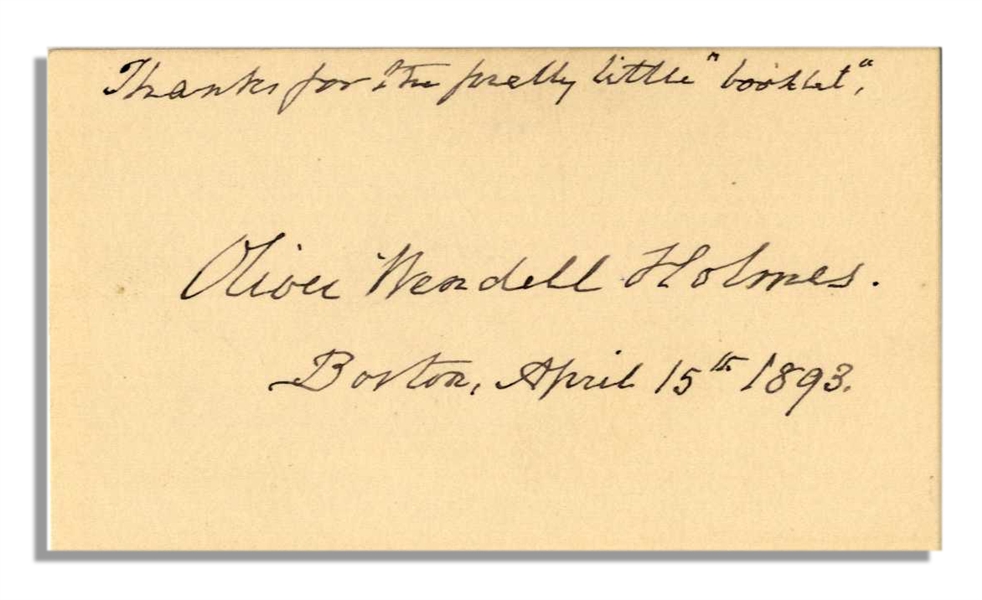 Thanks for the pretty little "booklet",
Oliver Wendell Holmes.
Boston, April 15th 1893.